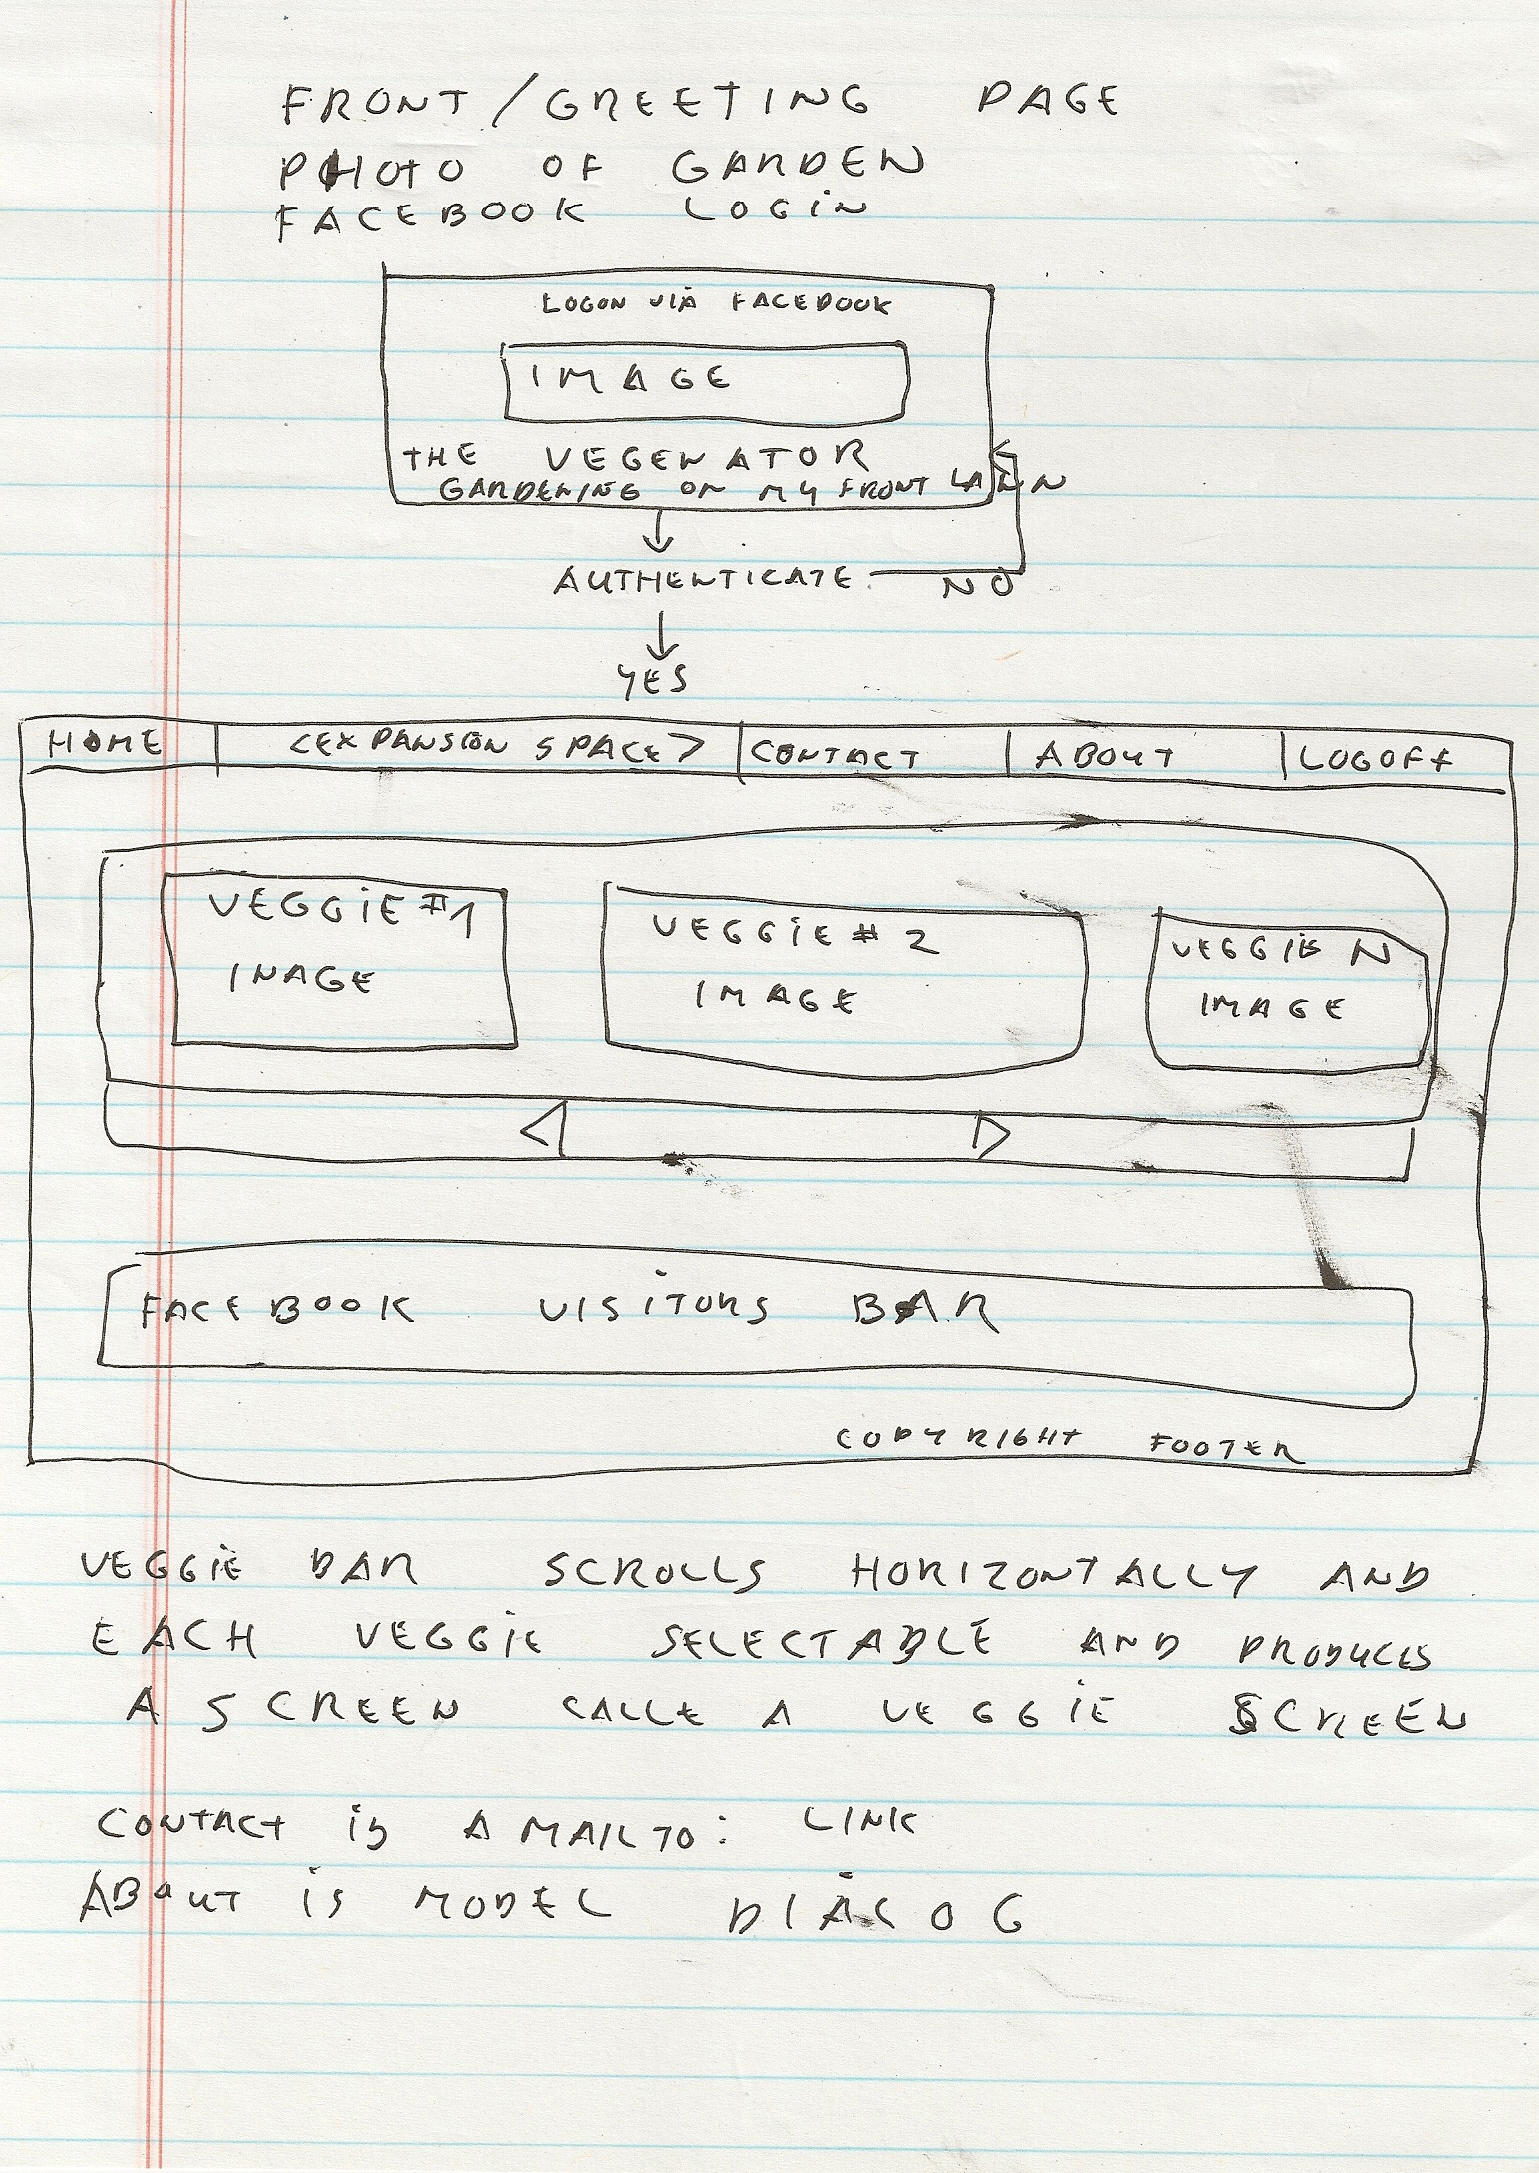 FRONT/GREETING PAGE
PHOTO OF GARDEN
FACEBOOK LOGIN
LOGON VIA FACEBOOK
IMAGE
THE VEGENATOR
GARDENING ON MY FRONT LAWN
AUTHENTICATE NO
YES
HOME <EXPANSION SPACE> CONTACT ABOUT LOGOFF
VEGGIE #1 VEGGIE #2 VEGGIE N
INAGE IMAGE IMAGE
FACEBOOK VISITORS BAR
COPYRIGHT FOOTER
VEGGIE BAR SCROLLS HORIZONTALLY AND
EACH VEGGIE SELECTABLE AND PRODUCES
A SCREEN CALLE A VEGGIE SCREEN
CONTACT is A MAILTO: LINK
ABOUT is MODEL DIALOG